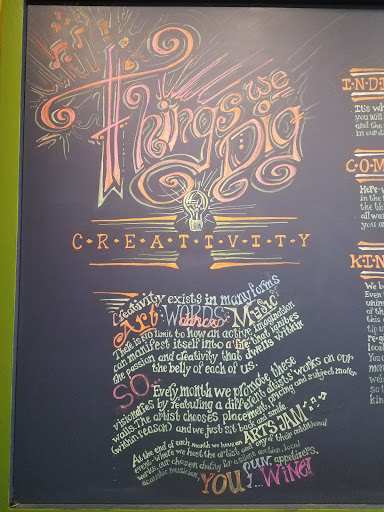 Things we Dig
C·R·E·A·T·I·V·I·T·Y
Creativity exists in many forms
Art WORDS dance Music
There is no limit to how an active imagination
can manifest itself into a that ignites
the passion and creativity that dwells within
the belly of each of us.
SO...
Every month we promote these
visionaries by featuring a different artist's works on our
walls. The artist chooses placement, pricing and subject matter
(within reason) and we just sit back and smile.
At the end of each month we have an ARTS JAM
event where we host the artist and any of their additional
works, our chosen charity for a silent auction, local
acoustic musician, appetizers,
YOU fun... WINE!
INDI
It's wh
you will
and the
in our d
COM
Here
in the
the th
all wo
you o
KIN
We b
Even
unive
of th
this
tip
re-
local
You
we
so t
kin